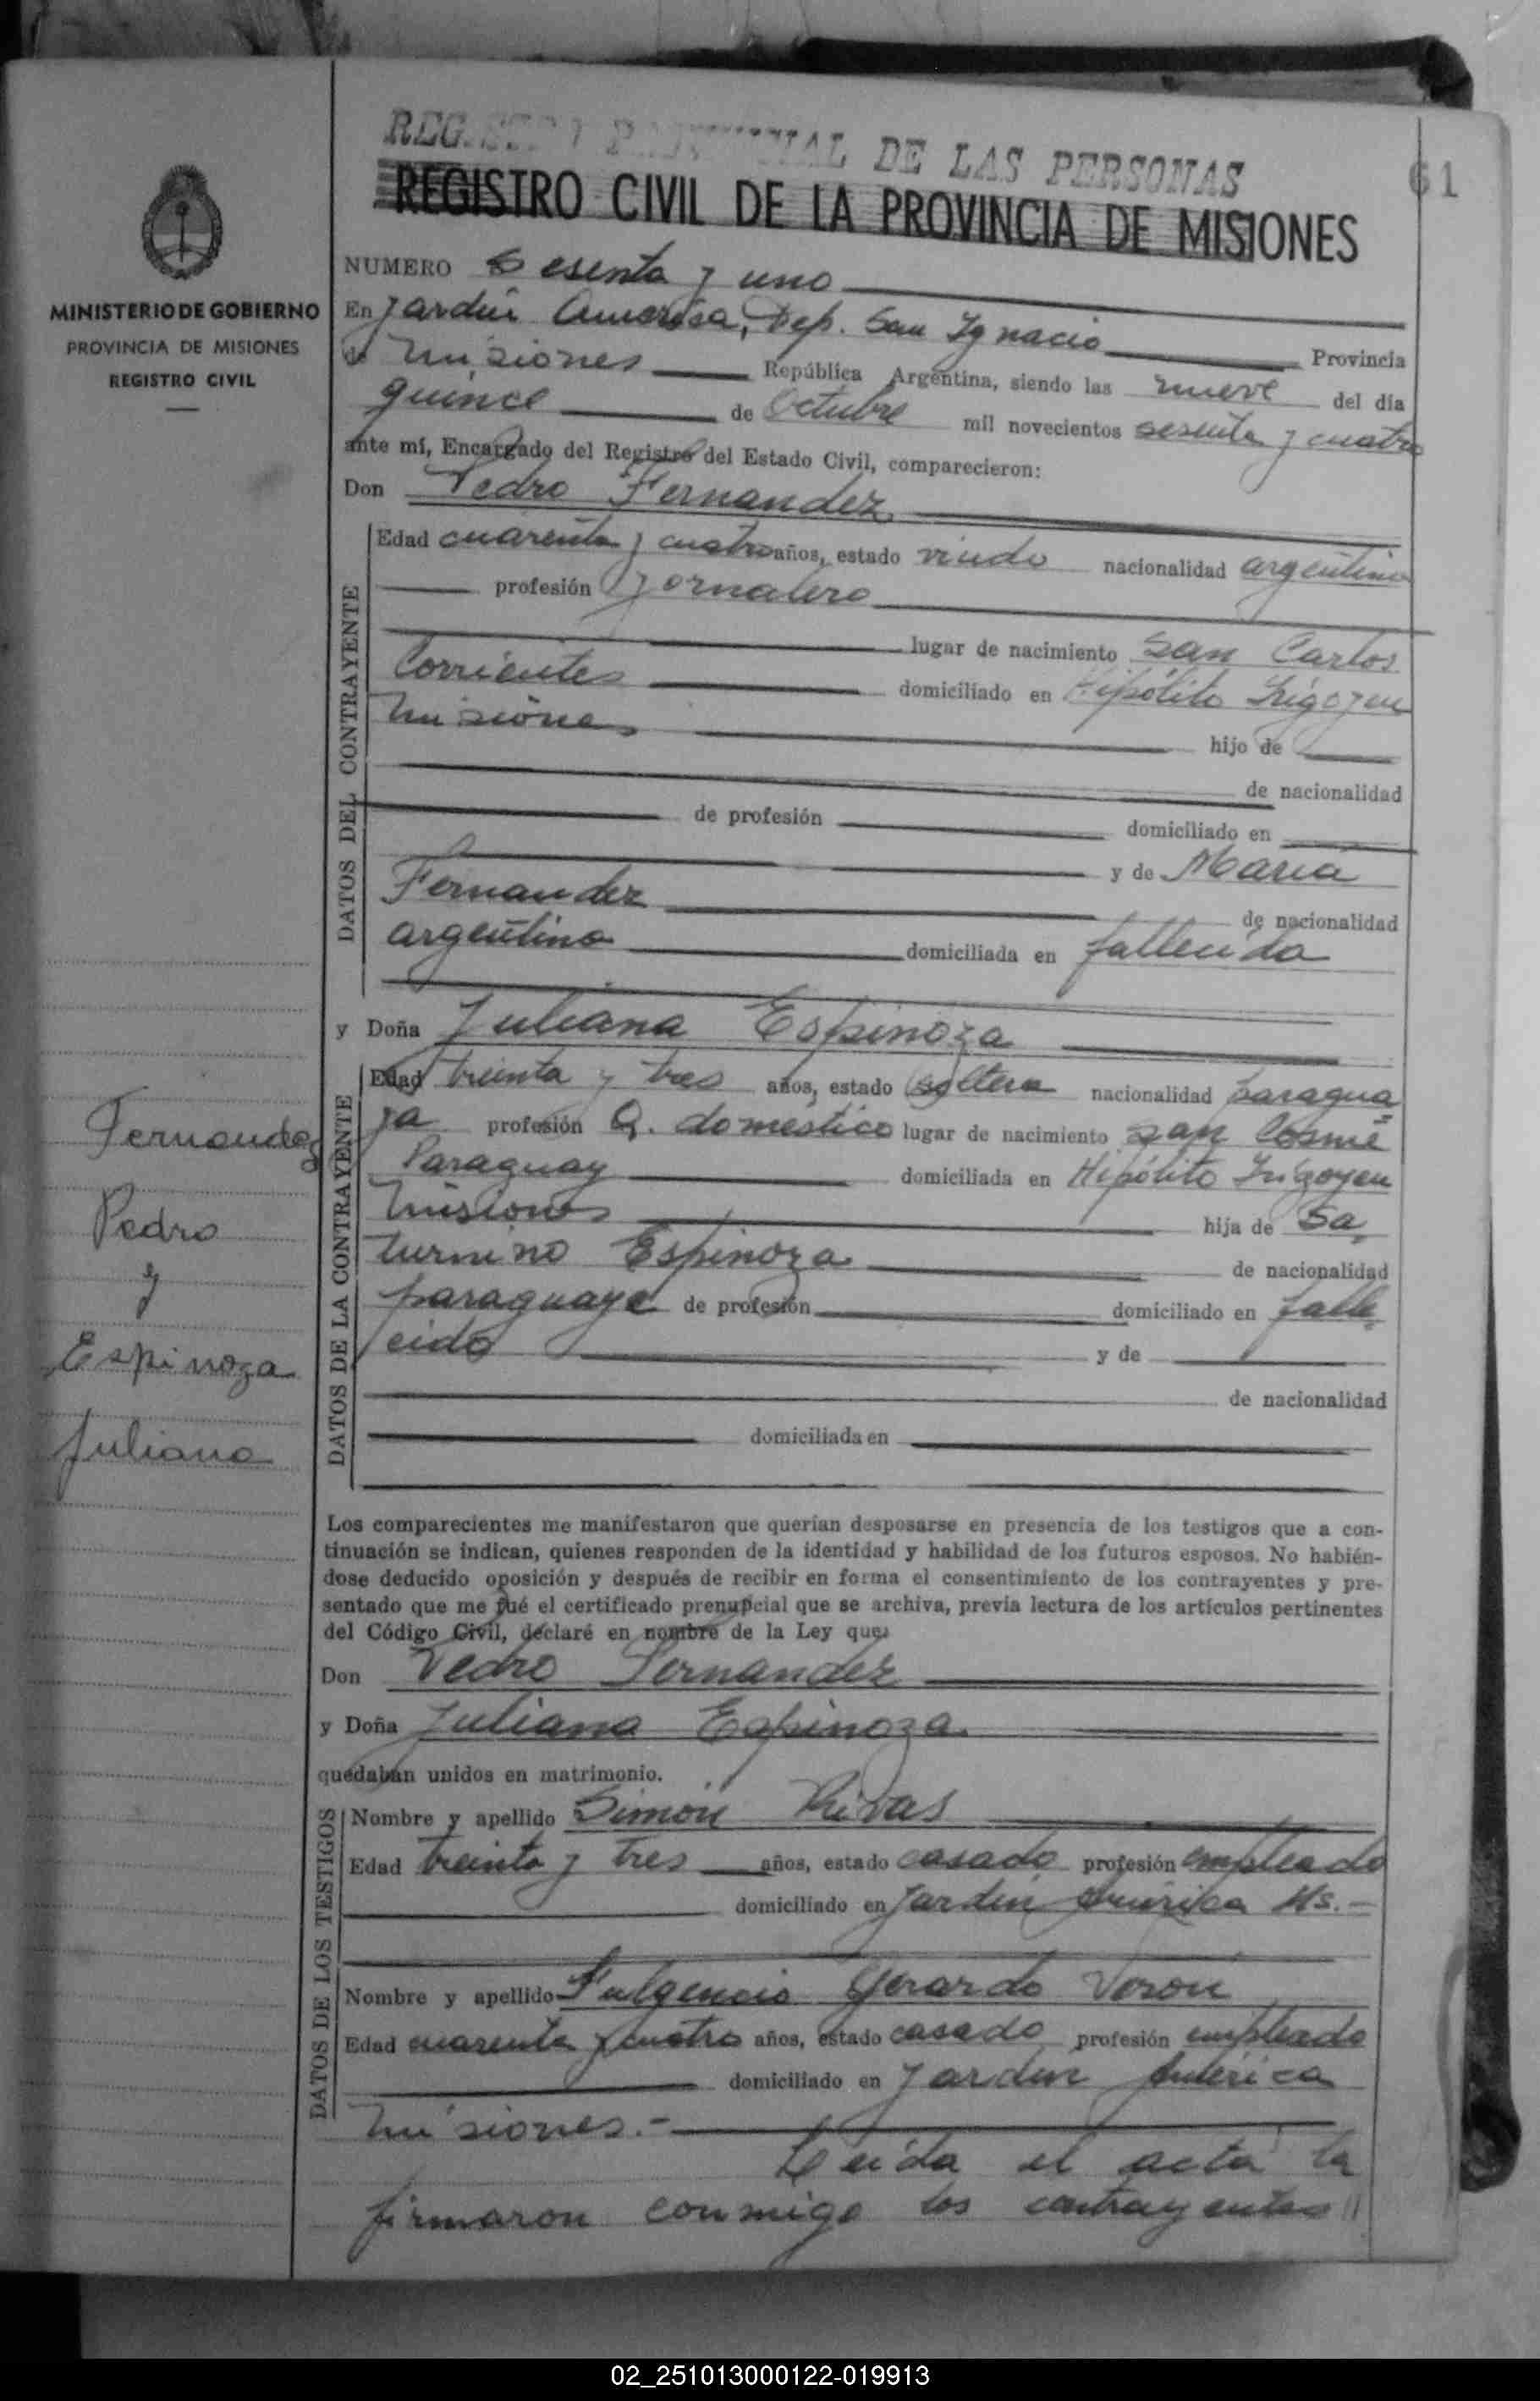 REGISTRO PROVINCIAL DE LAS PERSONAS
61
REGISTRO CIVIL DE LA PROVINCIA DE MISIONES
MINISTERIO DE GOBIERNO
PROVINCIA DE MISIONES
REGISTRO CIVIL
NUMERO Sesenta y uno
En Jardín America, Dep. San Ignacio Provincia
de Misiones República Argentina, siendo las nueve del día
quince de Octubre mil novecientos sesenta y cuatro
ante mí, Encargado del Registro del Estado Civil, comparecieron:
Don Pedro Fernandez
DATOS DEL CONTRAYENTE
Edad cuarenta y cuatro años, estado viudo nacionalidad argentino
profesión jornalero
lugar de nacimiento San Carlos
Corrientes domiciliado en Hipólito Irigoyen
Misiones hijo de
de nacionalidad
de profesión domiciliado en
y de Maria
Fernandez de nacionalidad
argentina domiciliada en fallecida
y Doña Juliana Espinoza
DATOS DE LA CONTRAYENTE
Edad treinta y tres años, estado soltera nacionalidad paragua
ya profesión Q. domestico lugar de nacimiento San Cosme
Paraguay domiciliada en Hipólito Irigoyen
Misiones hija de Sa
turnino Espinoza de nacionalidad
paraguaya de profesión domiciliado en falle
cido y de
de nacionalidad
domiciliada en
Fernandez
Pedro
y
Espinoza
Juliana
Los comparecientes me manifestaron que querían desposarse en presencia de los testigos que a con-
tinuación se indican, quienes responden de la identidad y habilidad de los futuros esposos. No habién-
dose deducido oposición y después de recibir en forma el consentimiento de los contrayentes y pre-
sentado que me fué el certificado prenupcial que se archiva, previa lectura de los artículos pertinentes
del Código Civil, declaré en nombre de la Ley que:
Don Pedro Fernandez
y Doña Juliana Espinoza
quedaban unidos en matrimonio.
DATOS DE LOS TESTIGOS
Nombre y apellido Simón Rivas
Edad treinta y tres años, estado casado profesión empleado
domiciliado en Jardín América Ms.-
Nombre y apellido Fulgencio Gerardo Verón
Edad cuarenta y cuatro años, estado casado profesión empleado
domiciliado en Jardín América
Misiones.-
Leída el acta la
firmaron conmigo los contrayentes //
02_251013000122-019913